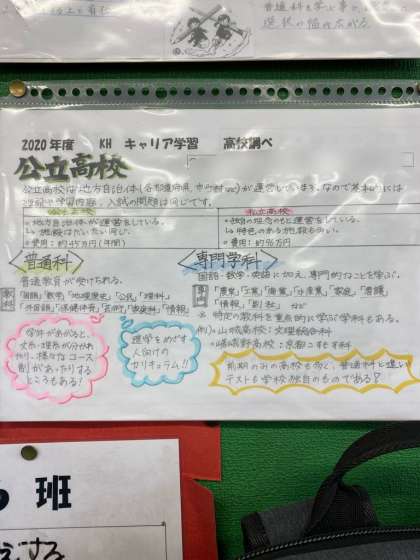 普通科を学ぶ事で、
選択の幅の広がる。
2020年度 KH キャリア学習 高校調べ
公立高校
公立高校は地方自治体(各都道府県、市町村など)が運営しています。なので基本的には
理解や学習内容、入試の問題は同じです。
公立高校 私立高校
・地方自治体が運営をしている。 ・独自の理念のもと運営をしている。
→施設はだいたい同じ。 →特色のある施設も多い。
・費用:約45万円(年間) ・費用:約96万円
普通科 専門学科
普通教育が受けられる。 国語・数学・英語に加え、専門的なことを学ぶ。
教科「国語」「数学」「地理歴史」「公民」「理科」
「外国語」「保健体育」「芸術」「家庭科」「情報」
「農業」「工業」「商業」「水産業」「家庭」「看護」
「情報」「福祉」など
※ 特定の教科を重点的に学ぶ学科もある。
例)・山城高校:文理総合科
・嵯峨野高校:京都こすもす科
学年があがると、
文系・理系が分かれ
たり、様々なコース
制があったりする
ところもある!
進学をめざす
人向けの
カリキュラム!!
前期のみの高校も多く、普通科と違い
テストも学校独自のものである?
班